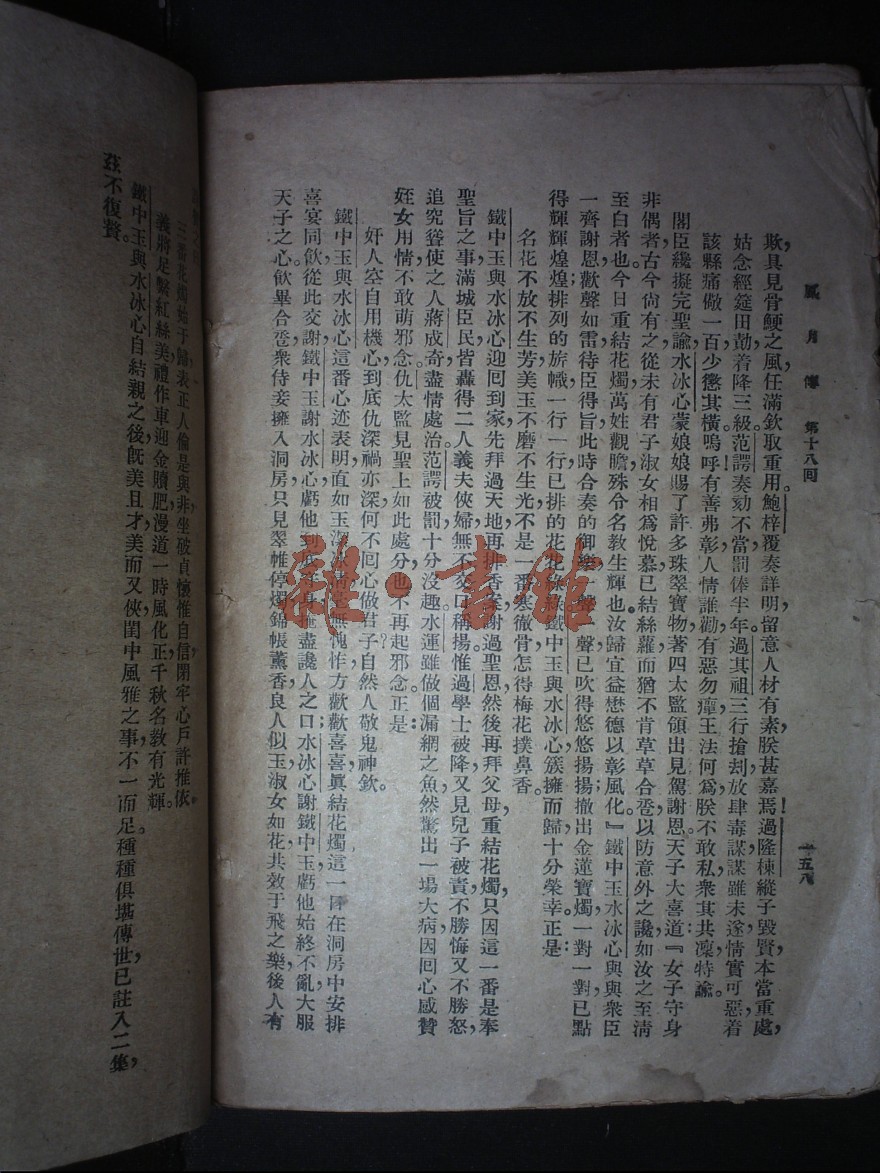 風月傳　第十八回　一五八
欺,具見骨鯁之風,任滿欽取重用。鮑梓覆奏詳明,留意人材有素,朕甚嘉焉!過隆棟縱子毀賢,本當重處,
姑念經筵田勣,着降三級。范諤奏劾不當,罰俸半年。過其祖三行搶刧,放肆毒謀,謀雖未遂,情實可惡,着
該縣痛儆一百,少懲其橫。嗚呼有善弗彰,人情誰勸有惡勿癉,王法何爲朕不敢私,衆其共凜特諭。
閣臣纔擬完聖諭,水冰心蒙娘娘賜了許多珠翠寶物,著四太監領出見駕謝恩。天子大喜道:『女子守身
非偶者,古今尙有之,從未有君子淑女相爲悅慕,已結絲蘿而猶不肯草草合卺,以防意外之讒,如汝之至清
至白者也。今日重結花燭,萬姓觀瞻,殊令名教生輝也。汝歸宜益懋德,以彰風化。』鐵中玉水冰心與與衆臣
一齊謝恩,歡聲如雷。侍臣得旨,此時合奏的御樂一聲一聲,已吹得悠悠揚揚;撤出金蓮寶燭,一對一對,已點
得輝輝煌煌;排列的旂幟,一行一行,已排的花花綠綠。鐵中玉與水冰心簇擁而歸,十分榮幸。正是:
名花不放不生芳,美玉不磨不生光,不是一番寒徹骨,怎得梅花撲鼻香。
鐵中玉與水冰心迎囘到家,先拜過天地,再排香案,謝過聖恩,然後再拜父母,重結花燭。只因這一番是奉
聖旨之事,滿城臣民皆轟得二人義夫俠婦,無不交口稱揚。惟過學士被降,又見兒子被責,不勝悔,又不勝怒,
追究聳使之人,蔣成奇盡情處治。范諤被罰,十分沒趣。水運雖做個漏網之魚,然驚出一場大病,因囘心感贊
姪女用情,不敢萌邪念。仇太監見聖上如此處分,也不再起邪念。正是:
奸人空自用機心,到底仇深禍亦深,何不囘心做君子?自然人敬鬼神欽。
鐵中玉與水冰心這番心迹表明,直如玉潔冰清,毫無愧怍,方歡歡喜喜,眞結花燭。這一陣在洞房中安排
喜宴同飮,從此交謝。鐵中玉謝水冰心虧他到底守身,掩盡讒人之口;水冰心謝鐵中玉虧他始終不亂,大服
天子之心。飮畢合卺,衆侍妾擁入洞房,只見翠帷停燭,錦帳薰香,良人似玉,淑女如花,共效于飛之樂,後人有
三番花燭始于歸,表正人倫是與非,坐破貞懷惟自信,閉牢心戶許推依
義將足繫紅絲美,禮作車迎金犢肥,漫道一時風化正,千秋名教有光輝。
鐵中玉與水冰心自結親之後,旣美且才,美而又俠,閨中風雅之事,不一而足,種種俱堪傳世,已註入二集,
茲不復贅。
雜·書館